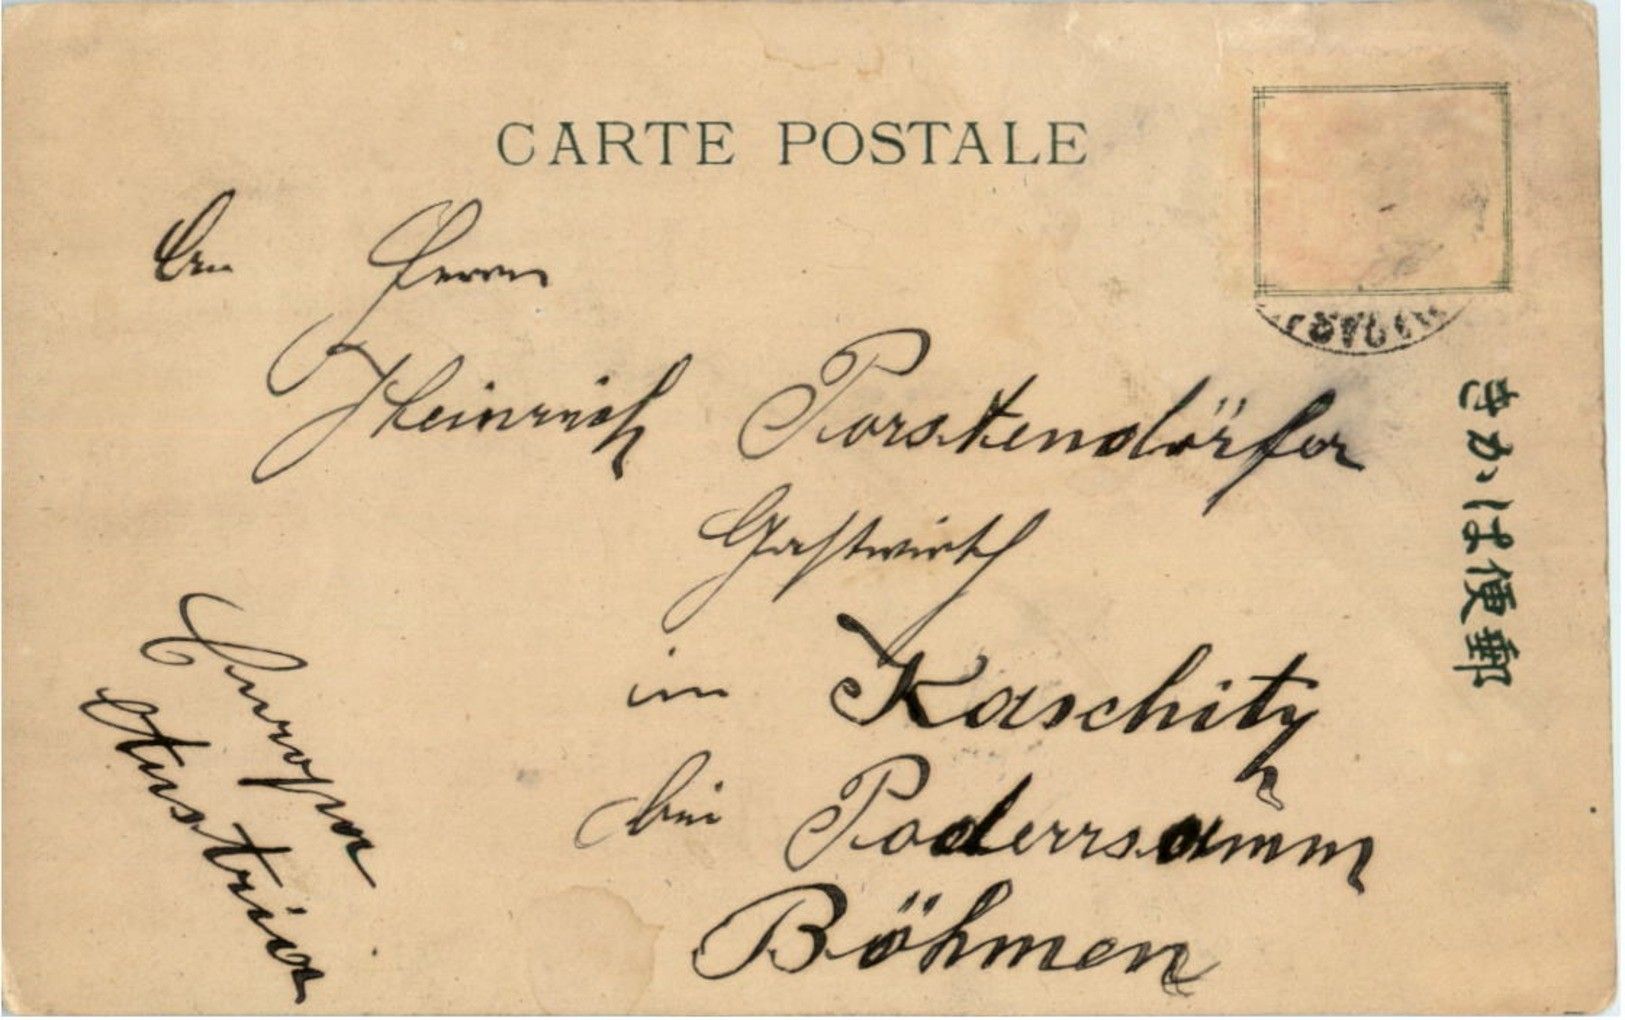 CARTE POSTALE
An Herrn
Heinrich Porstendörfer
Gastwirth
in Kaschitz
bei Poderrsamm
Böhmen
Europa
Austria
きかは便郵